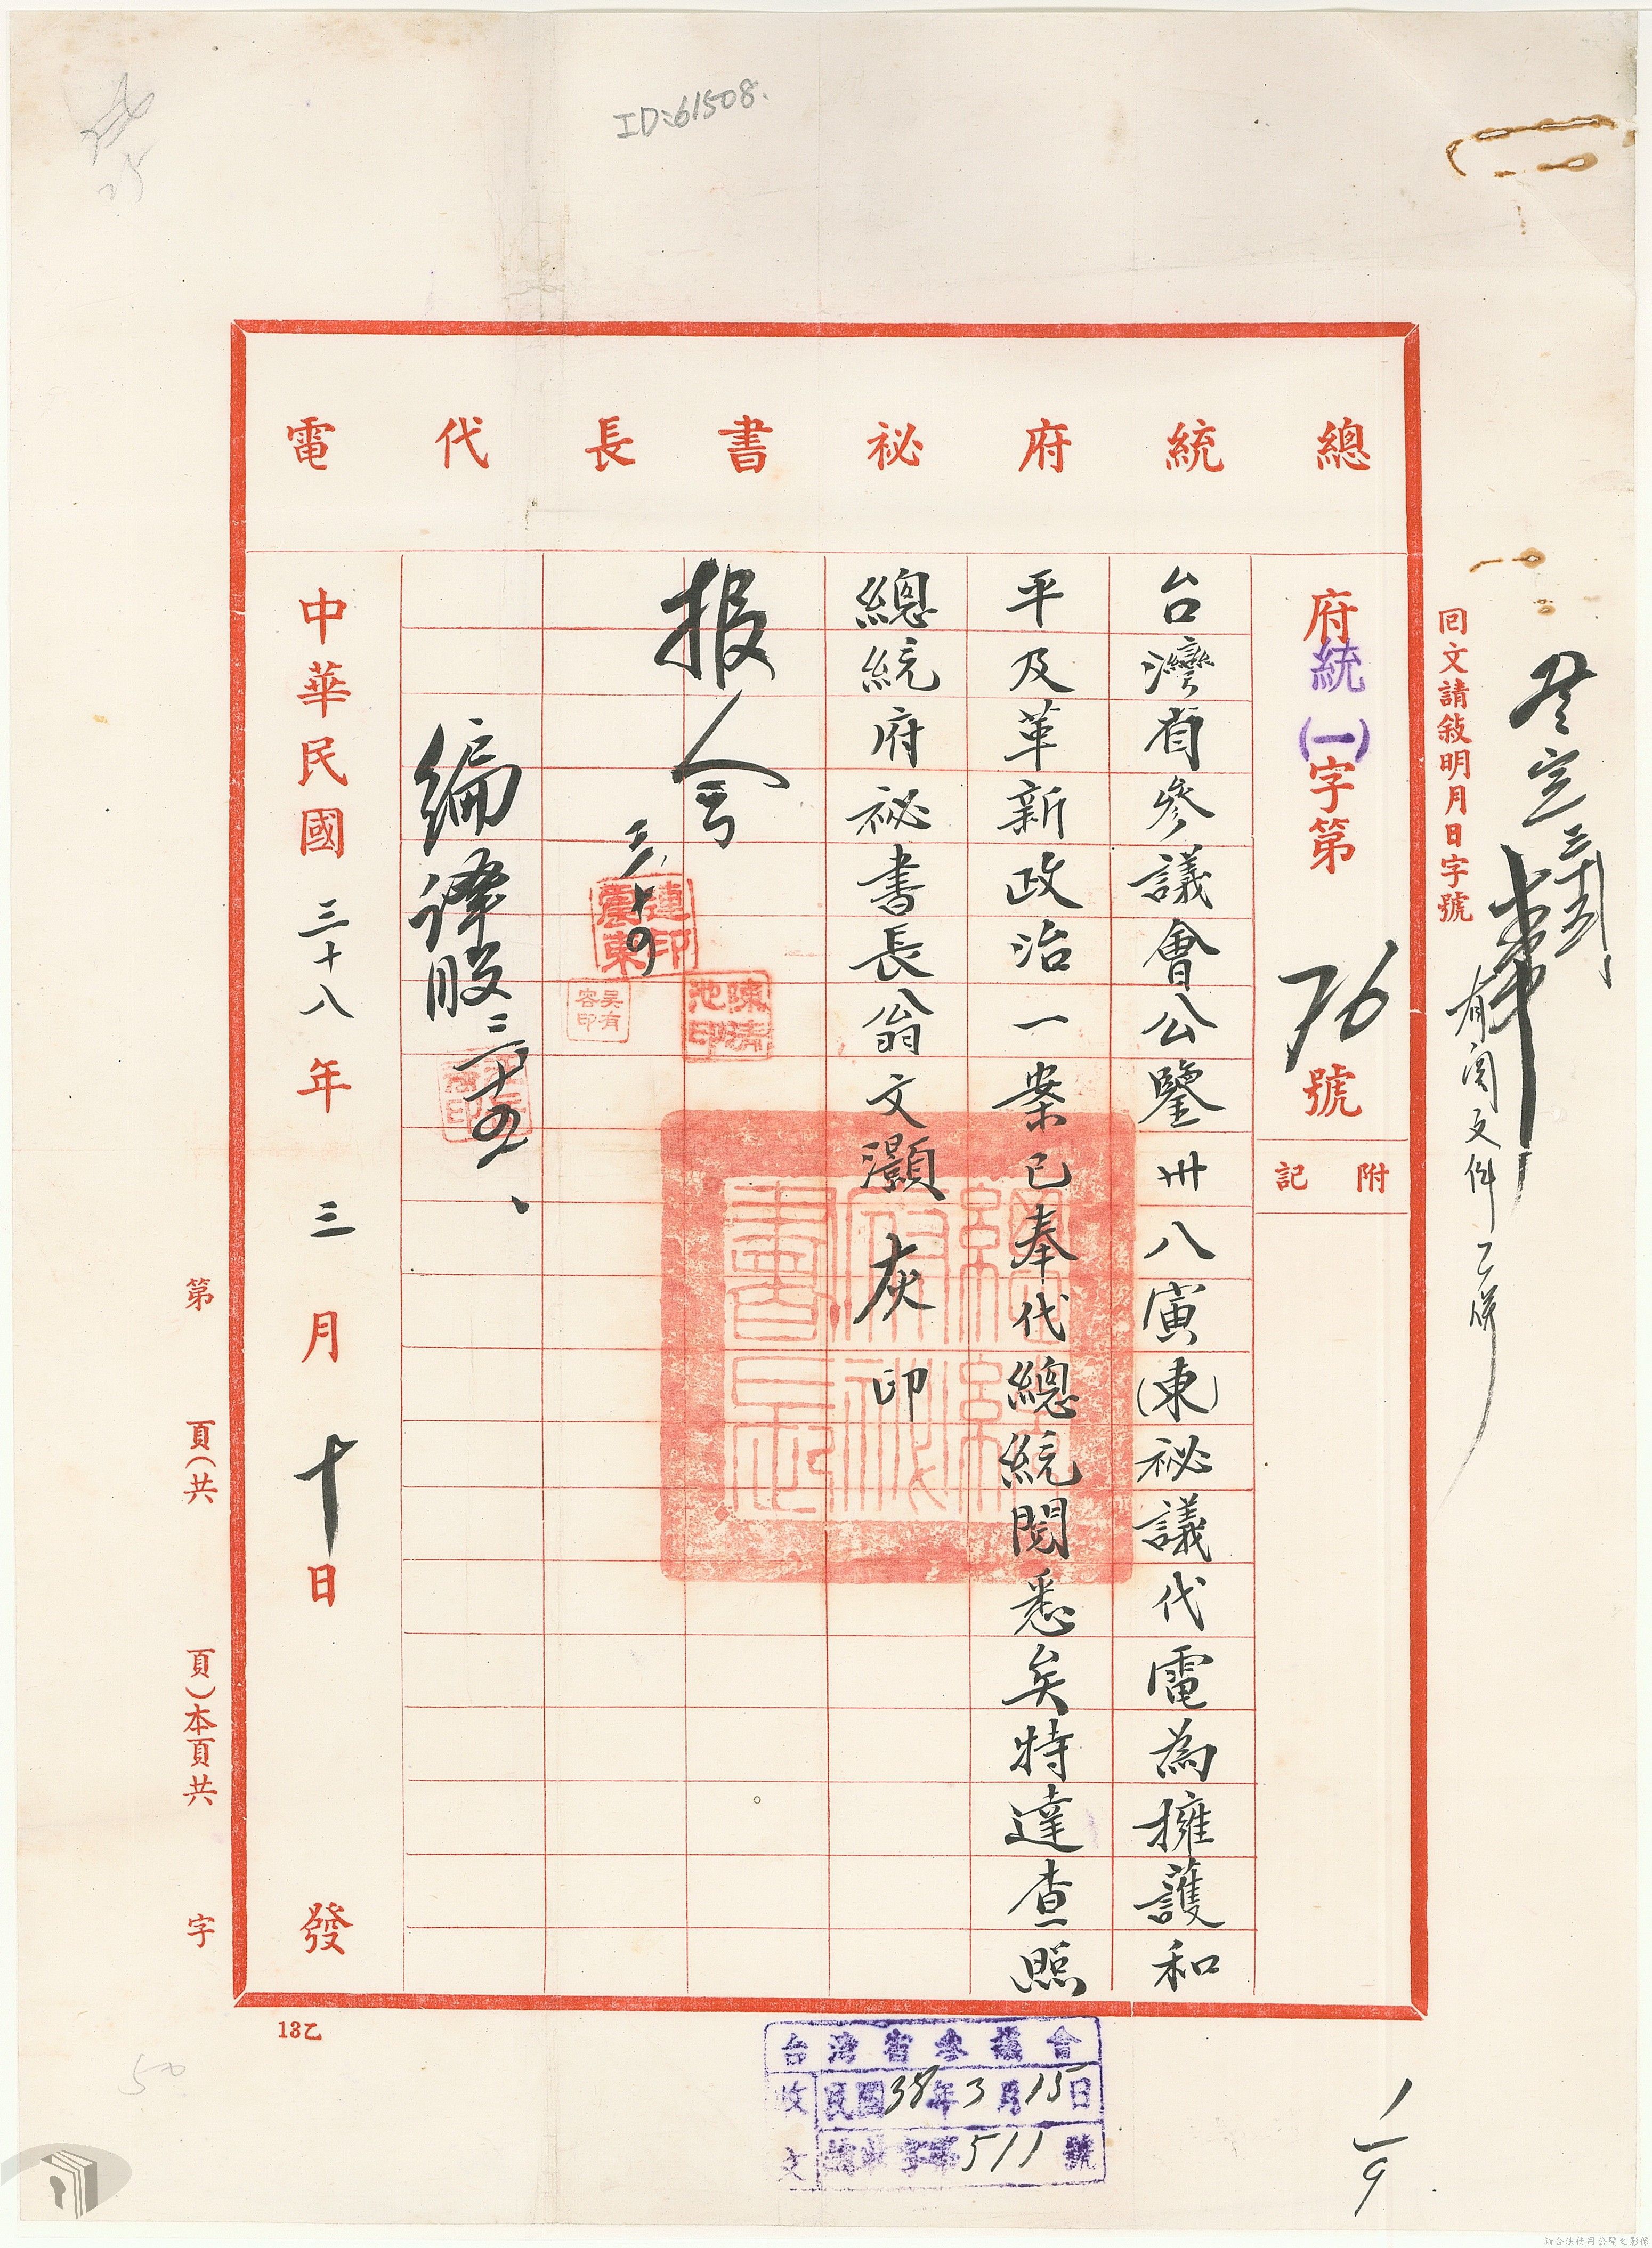 ID:61508.
總統府秘書長代電
回文請敍明月日字號
府統(一)字第76號
附記
台灣省參議會公鑒卅八寅(東)祕議代電為擁護和
平及革新政治一案已奉代總統閱悉矣特達查照
總統府祕書長翁文灝灰印
报會
三、十四
編譯股
三、十四、
中華民國三十八年三月十日發
第 頁(共 頁)本頁共 字
有關文件乙併
陳清池印
吳有容印
連震東印
總統府祕書長
13乙
台灣省參議會
收文
民國38年3月15日
字第511號
50
1/9
請合法使用公開之影像